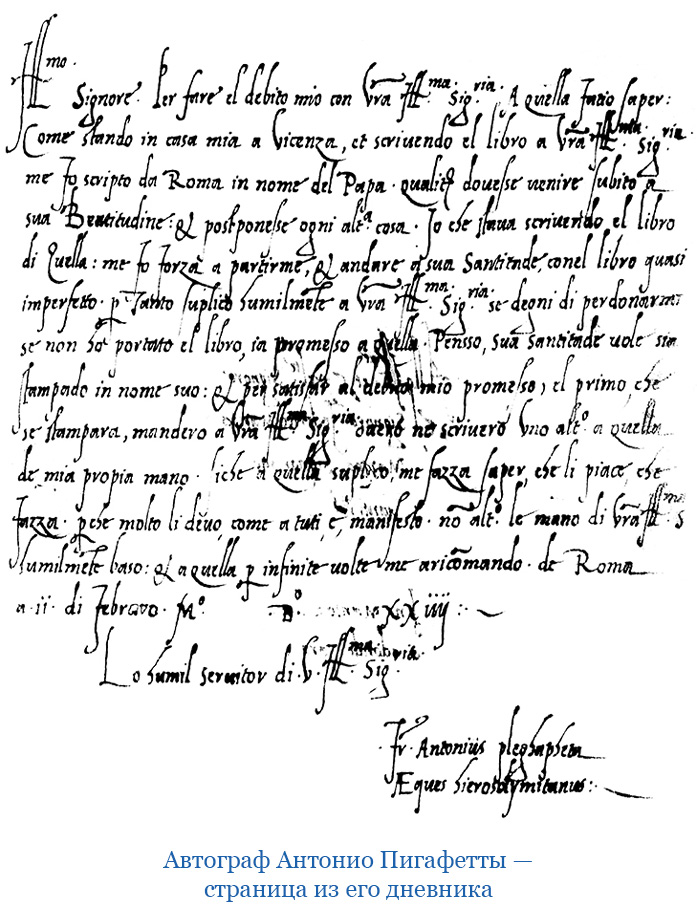 Ill.mo
Signore. Per fare el debito mio con Vra Ill.ma Sig.ria. A quella facio saper:
Come stando in casa mia a Vicenza, et scrivendo el libro a Vra Ill.ma Sig.ria.
me fo scripto da Roma in nome del Papa. qualit dovesse venire subito a
sua Beatitudine: & postponesse ogni alt.a cosa. Io che stava scrivendo el libro
di Quella: me fo forza a partirme, & andare a sua Santitade, con el libro quasi
imperfetto. p Tanto suplico humilmete a Vra Ill.ma Sig.ria. se degni di perdonarmi
se non ho portato el libro, ia promesso a quella. Pensso, sua Santitade vole sia
stampado in nome suo: & per satisfar al debito mio promesso, el primo, che
se stampara, mandero a Vra Ill.ma Sig.ria. overo ne scrivero Vno alt.o a quella
de mia propia mano. siche a quella suplico me fazza saper, che li piace che
fazza. pche molto li devo, come a tuti, e, manifesto. no alt.o le mano di Vra Ill.ma S
humilmete baso: & a quella p infinite volte me aricomando. de Roma
a ii. di Febravo. M.o D.o XXiiij:
Lo humil servitor di. V. Ill.ma Sig.ria.
Fr.o Antoniis pleghapheta
Æques hierosolymitanus:
Автограф Антонио Пигафетты —
страница из его дневника